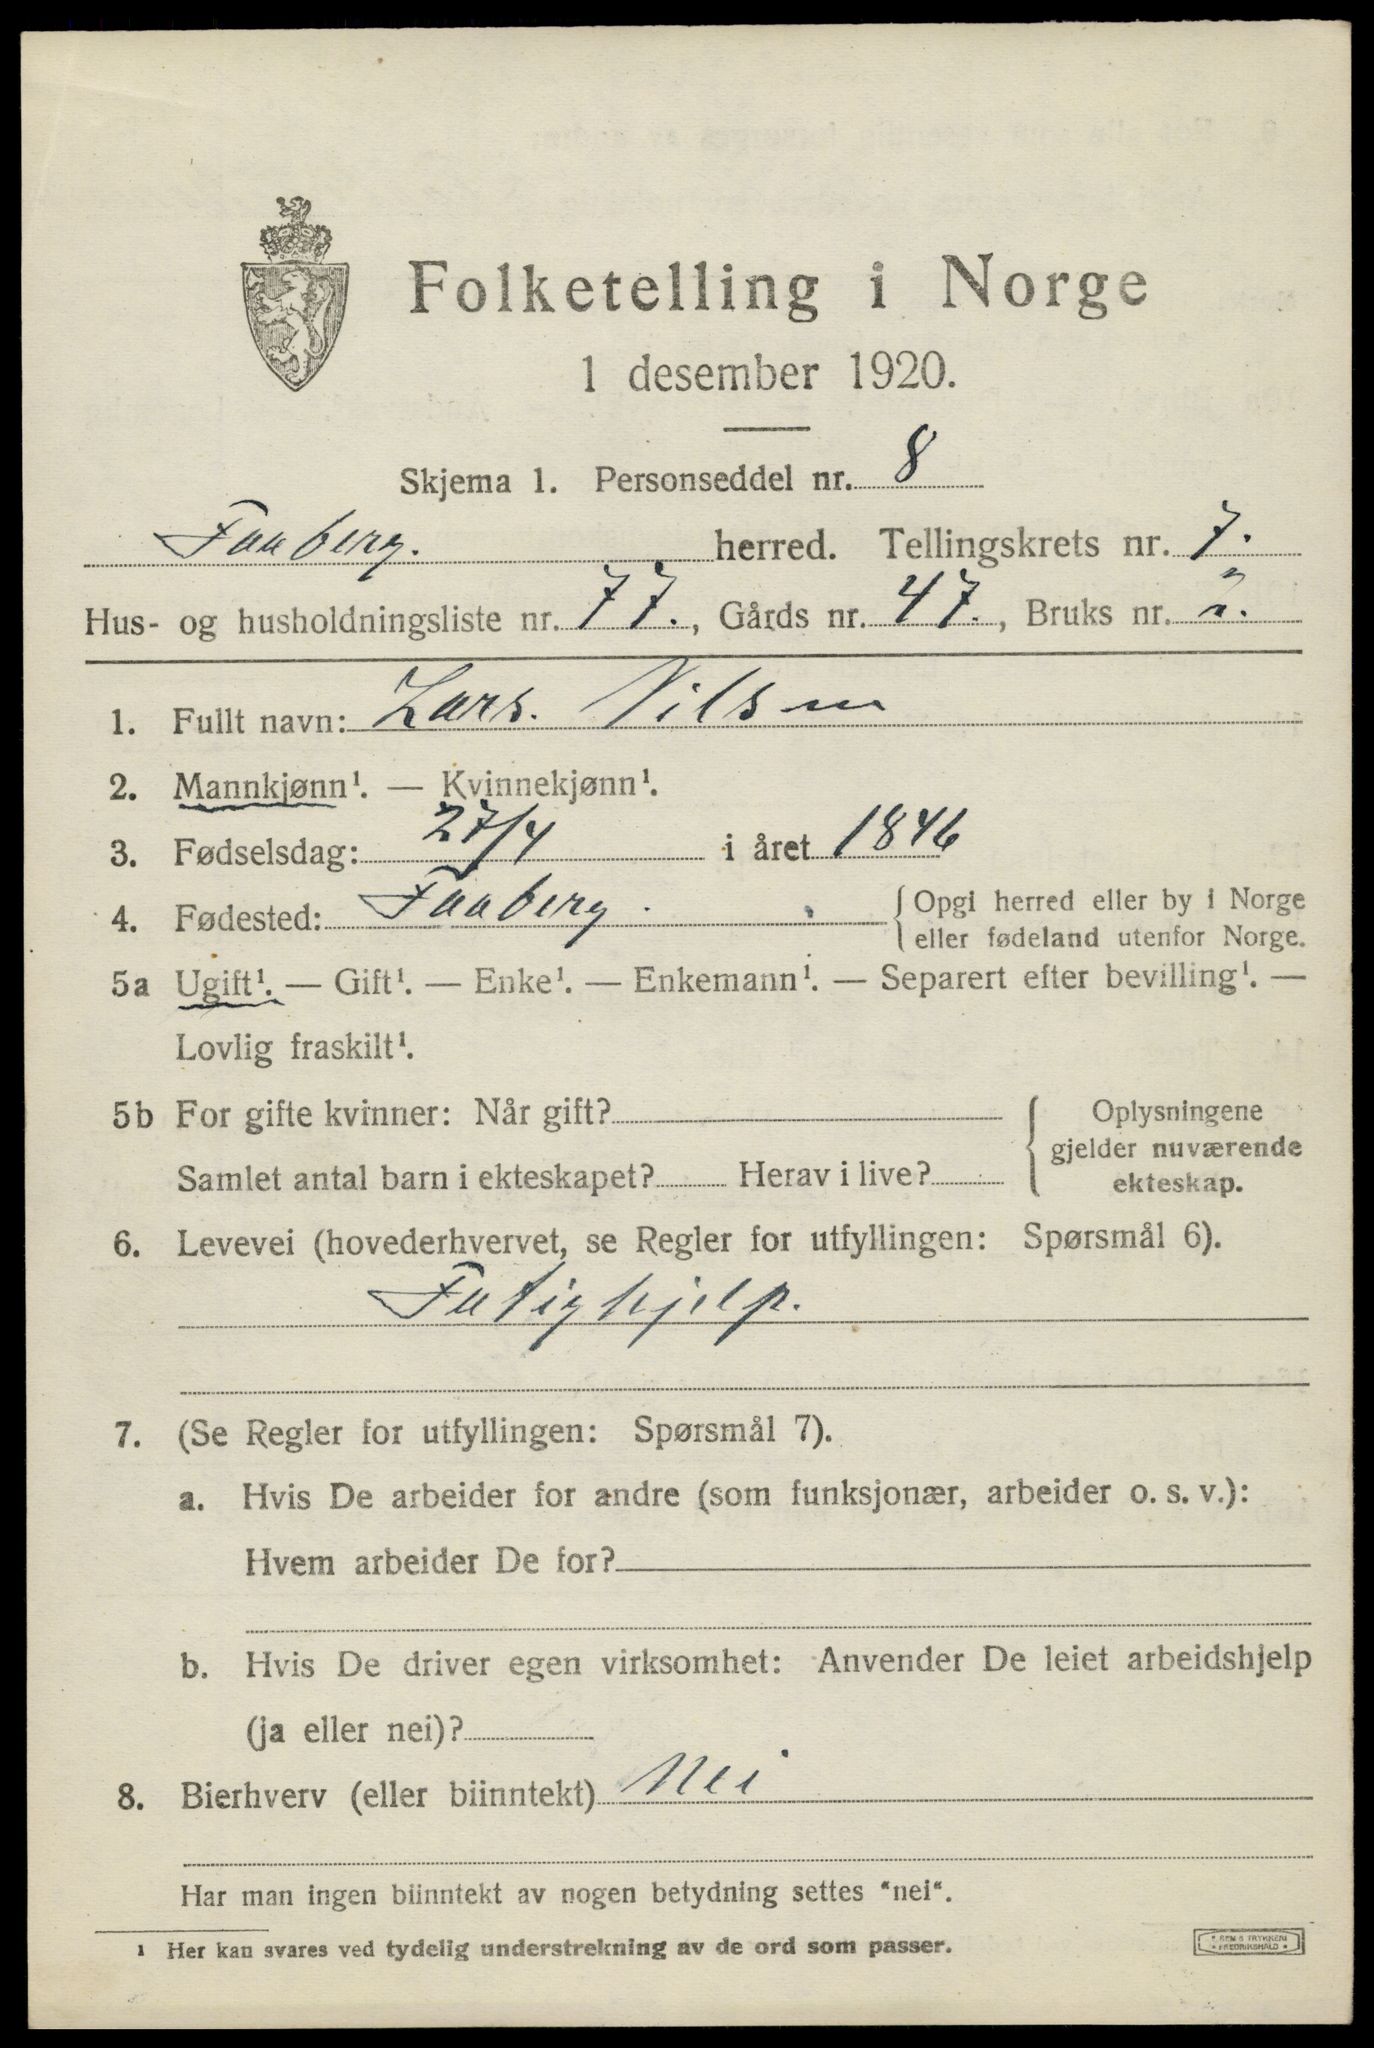 Folketelling i Norge
1 desember 1920.
Skjema 1. Personseddel nr. 8
Faaberg. herred. Tellingskrets nr. 7.
Hus- og husholdningsliste nr. 77., Gårds nr. 47., Bruks nr. 2.
1. Fullt navn: Lars. Nilsen
2. Mannkjønn¹. — Kvinnekjønn¹.
3. Fødselsdag: 27/4 i året 1846
4. Fødested: Faaberg. { Opgi herred eller by i Norge
eller fødeland utenfor Norge.
5a Ugift¹. — Gift¹. — Enke¹. — Enkemann¹. — Separert efter bevilling¹. —
Lovlig fraskilt¹.
5b For gifte kvinner: Når gift? { Oplysningene
gjelder nuværende
Samlet antal barn i ekteskapet? Herav i live? ekteskap.
6. Levevei (hovederhvervet, se Regler for utfyllingen: Spørsmål 6).
Fatighjelp.
7. (Se Regler for utfyllingen: Spørsmål 7).
a. Hvis De arbeider for andre (som funksjonær, arbeider o. s. v.):
Hvem arbeider De for?
b. Hvis De driver egen virksomhet: Anvender De leiet arbeidshjelp
(ja eller nei)?
8. Bierhverv (eller biinntekt) Nei
Har man ingen biinntekt av nogen betydning settes "nei".
¹ Her kan svares ved tydelig understrekning av de ord som passer.
TRYKKERI
FREDRIKSHALD